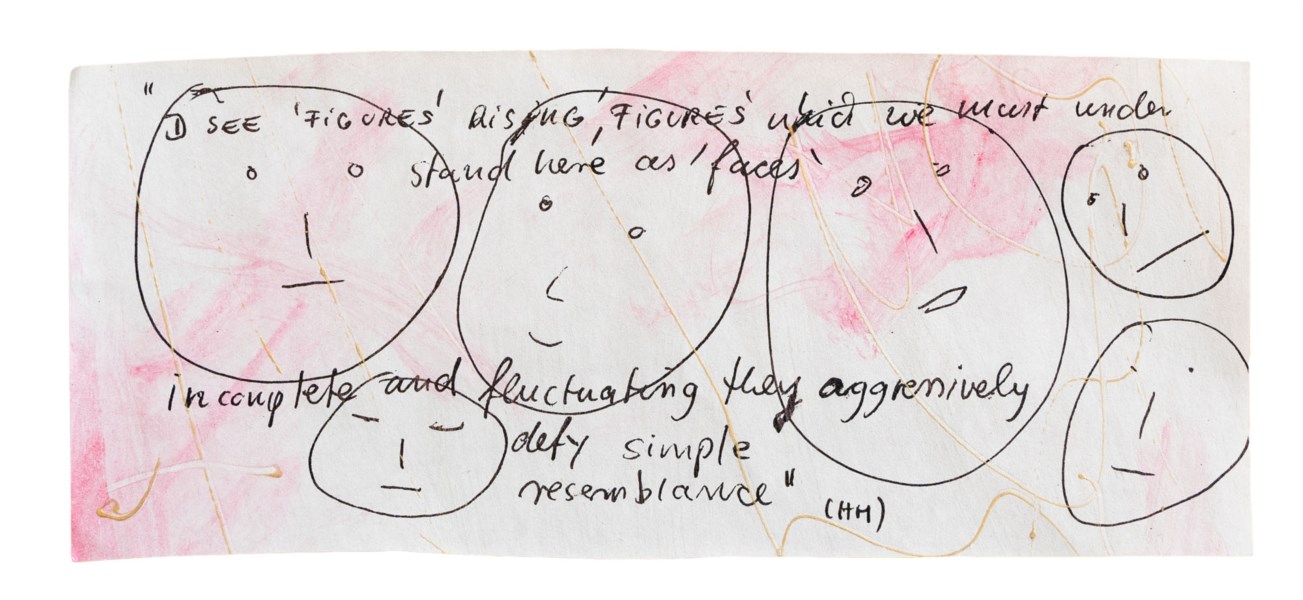 "I SEE 'FIGURES' RISING, 'FIGURES' which we must under
stand here as 'faces'
incomplete and fluctuating they aggressively
defy simple
resemblance"
(HH)